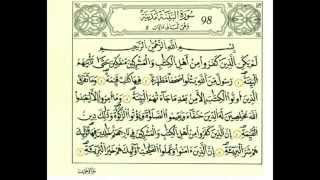 سورة البينة مدنية
98
بسم الله الرحمن الرحيم
لم يكن الذين كفروا من أهل الكتب والمشركين منفكين حتى تأتيهم
البينة رسول من الله يتلوا صحفا مطهرة فيها كتب قيمة وما تفرق
الذين أوتوا الكتب إلا من بعد ما جاءتهم البينة وما أمروا إلا ليعبدوا
الله مخلصين له الدين حنفاء ويقيموا الصلوة ويؤتوا الزكوة وذلك دين
القيمة إن الذين كفروا من أهل الكتب والمشركين في نار جهنم خلدين فيها أولئك
هم شر البرية إن الذين ءامنوا وعملوا الصلحت أولئك هم خير البرية